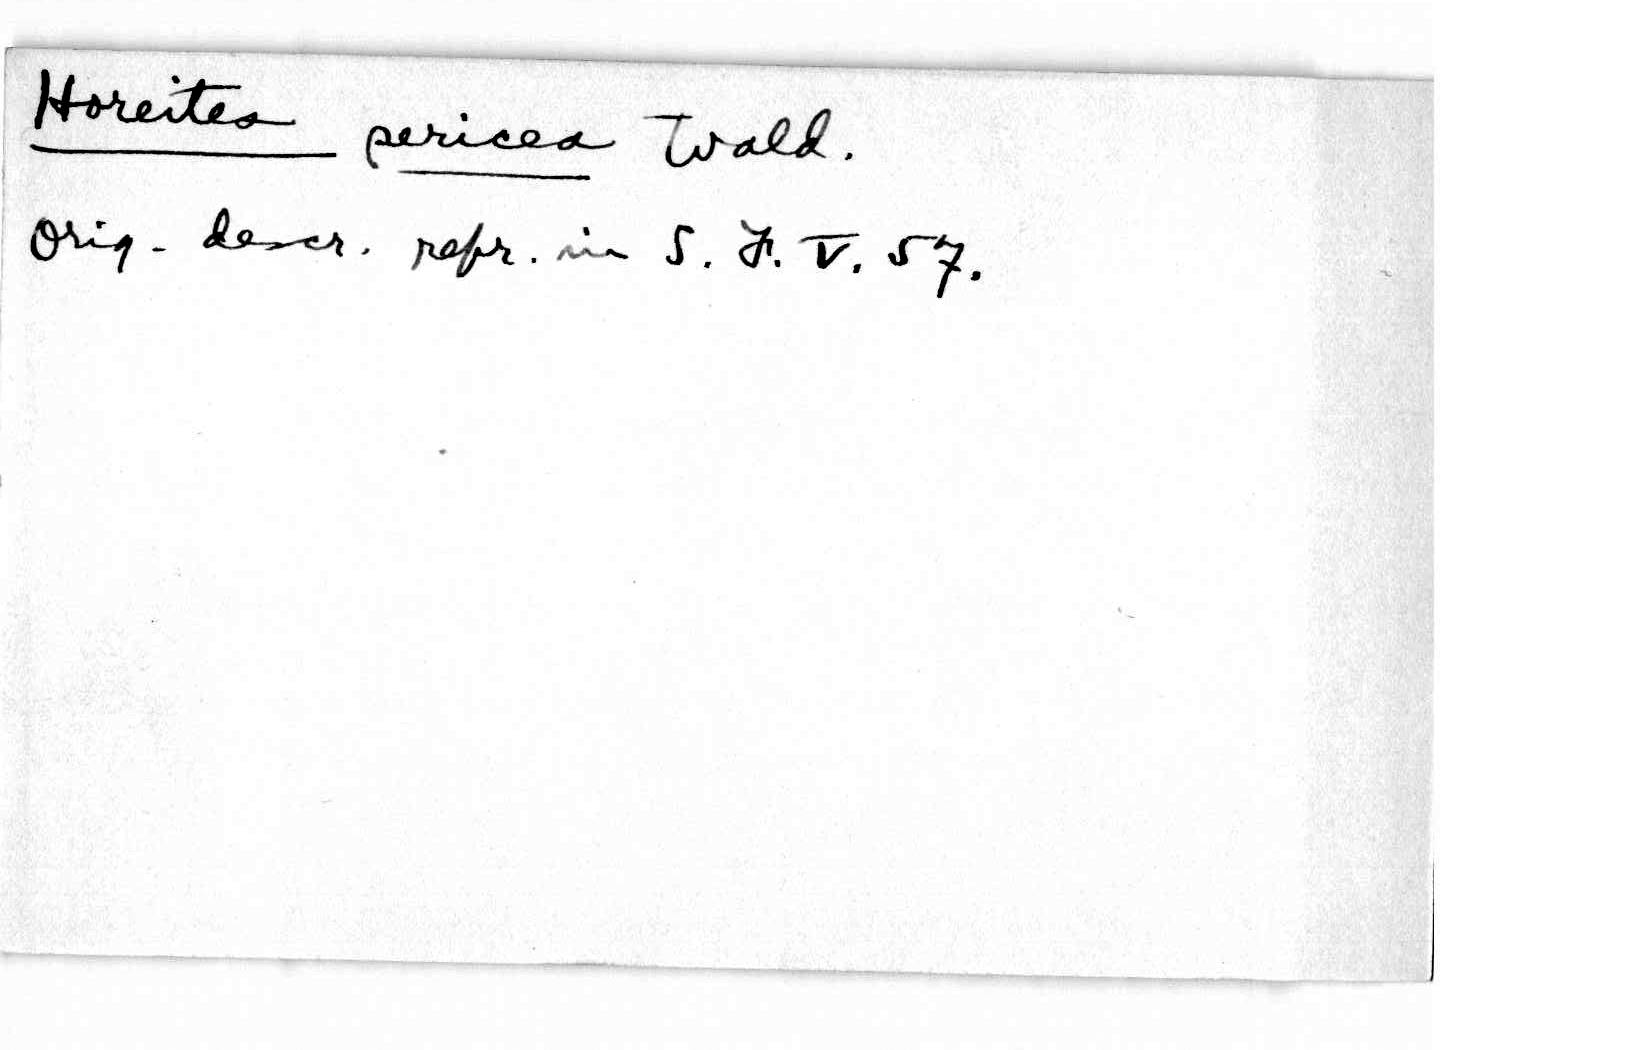 Horeites sericea Wald.
Orig. descr. repr. in S. F. V. 57.